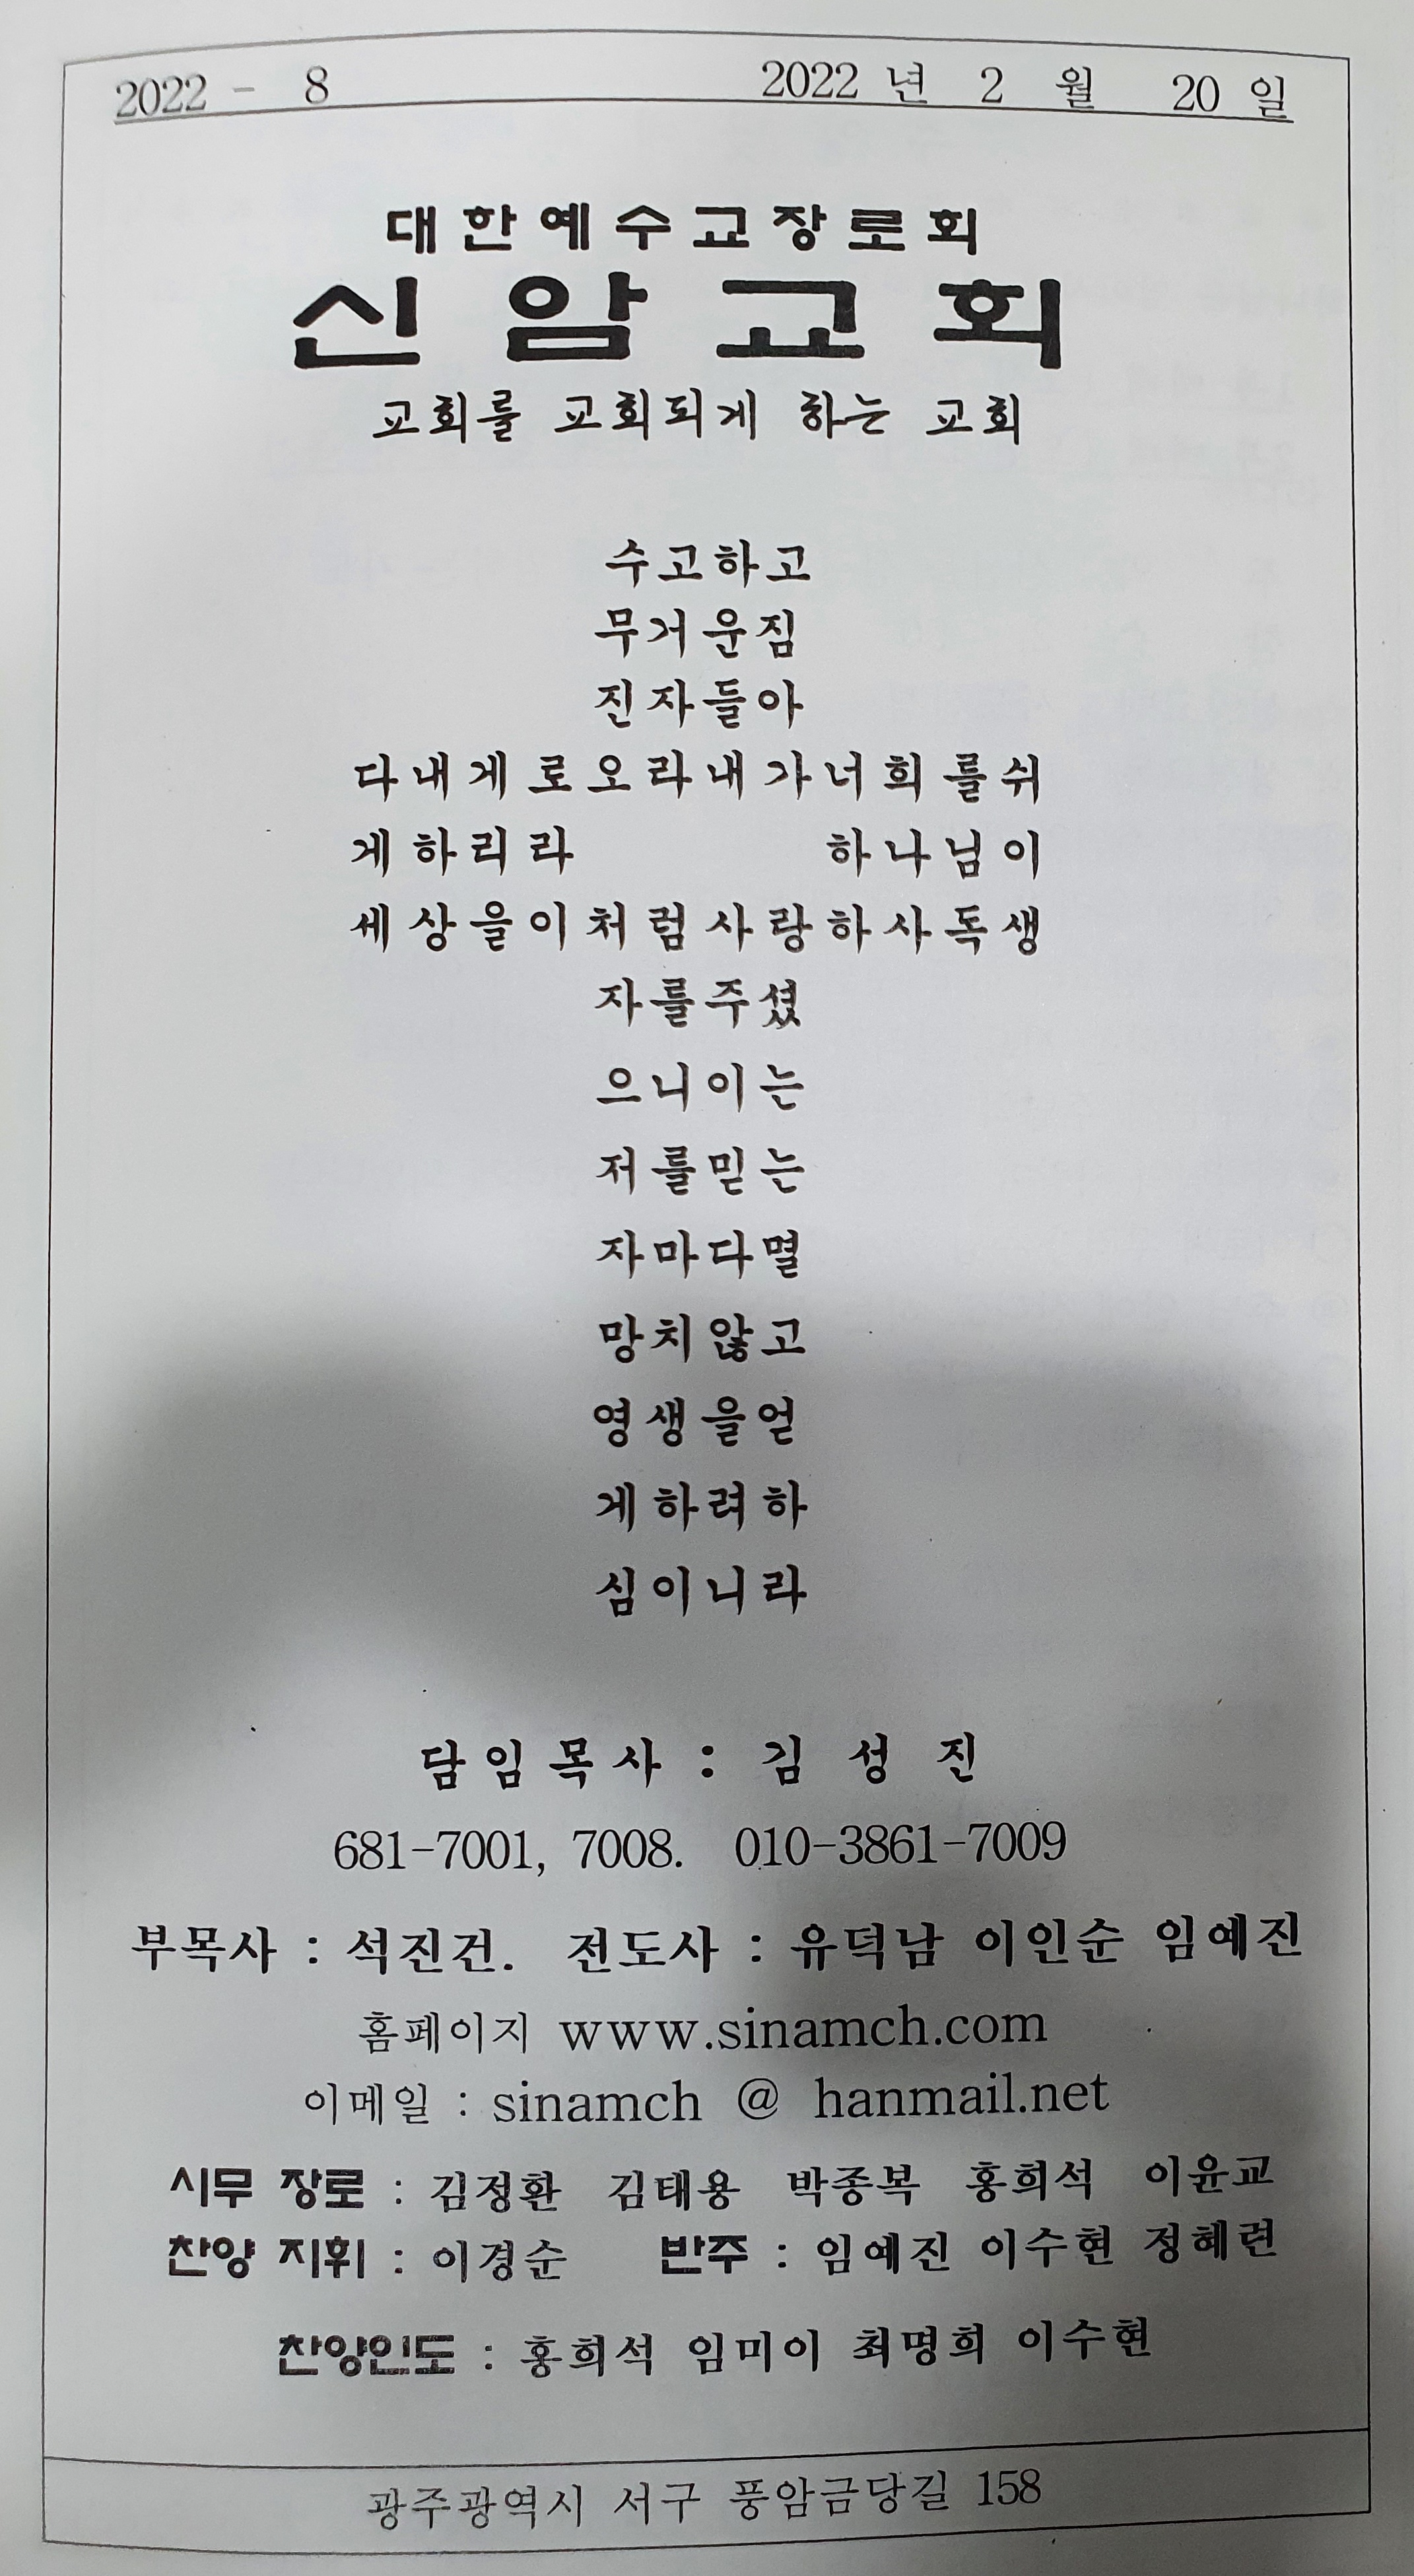 2022 - 8 2022 년 2 월 20 일
대한예수교장로회
신암교회
교회를 교회되게 하는 교회
수고하고
무거운짐
진자들아
다내게로오라내가너희를쉬
게하리라 하나님이
세상을이처럼사랑하사독생
자를주셨
으니이는
저를믿는
자마다멸
망치않고
영생을얻
게하려하
심이니라
담임목사 : 김 성 진
681-7001, 7008. 010-3861-7009
부목사 : 석진건. 전도사 : 유덕남 이인순 임예진
홈페이지 www.sinamch.com
이메일 : sinamch @ hanmail.net
시무 장로 : 김정환 김태용 박종복 홍희석 이윤교
찬양 지휘 : 이경순 반주 : 임예진 이수현 정혜련
찬양인도 : 홍희석 임미이 최명희 이수현
광주광역시 서구 풍암금당길 158